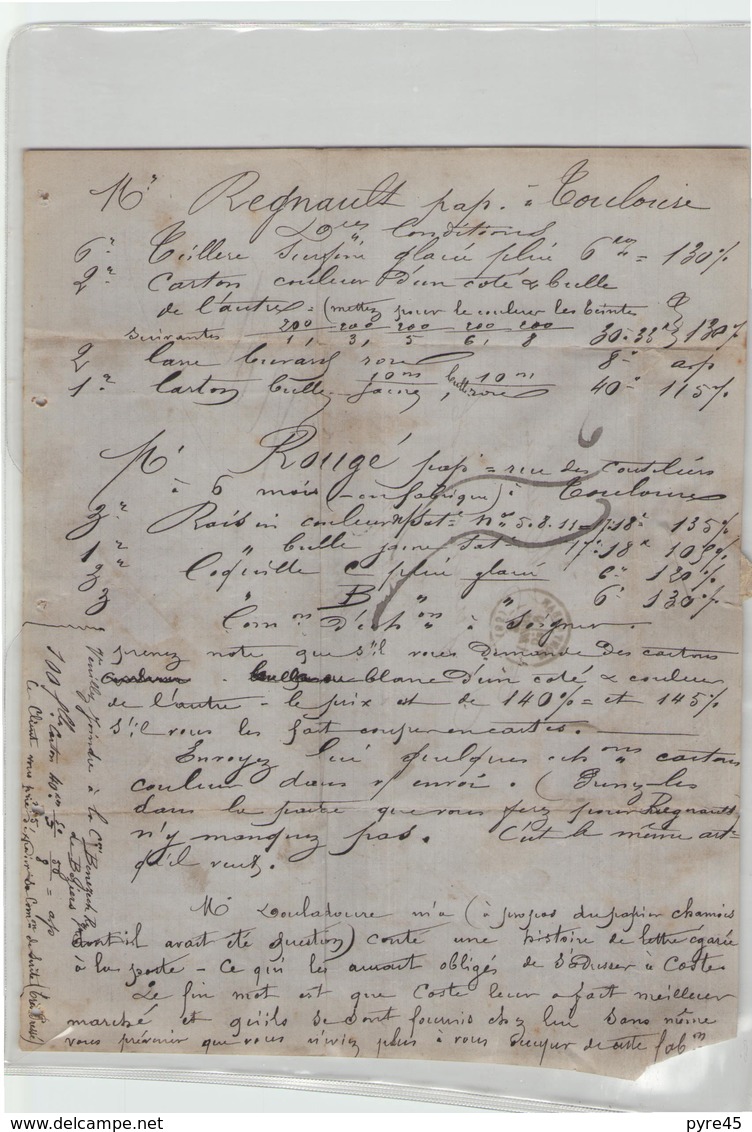 Mr Regnault pap. à Toulouse
Dres Conditions
6 r Tellière surfine glacé plié 6 = 130%
2 r Carton couleur d'un coté & bulle
de l'autre = (mettez pour le couleur les teintes
suivantes 200 200 200 200 200
1, 3, 5 6, 8 130%
2 8 ap
1 r Carton bulle 10 ns jaune, bulle 10 ns rose 40 115%
Mr Rougé pap = rue des Couteliers
à 6 mois (en fabrique) à Toulouse
3 r Raisin couleur Nos 5.8.11 = 18 135%
1 r " bulle jaune 17 18 k 105%
2 r Coquille C plié glacé 6 120%
3 " B " " 6 130%
Com ons d'ech ons à soigner.
prenez note que s'il vous demande des cartons
blanc d'un coté & couleur
de l'autre - le prix est de 140% = et 145%
s'il vous les fait couper en cartes.
Envoyez lui quelques ech ons cartons
couleur dans v/ envoi. (Prenez-les
dans la partie que vous ferez pour Regnault)
n'y manquez pas. C'est le même art =
qu'il veut.
Mr Douladoure m'a (à propos du papier chamois
dont il avait été question) conté une histoire de lettre égarée
à la poste - ce qui les aurait obligés de s'adresser à Coste
Le fin mot est que Coste leur a fait meilleur
marché et qu'ils se sont fournis chez lui sans même
vous prévenir que vous n'aviez plus à vous occuper de cette fab on
Veuillez joindre à la Con Benezech
de Béziers
100 Carton 40
Le Client vous prie d'expédier sa Comon de suite (très pressé)
pyre45